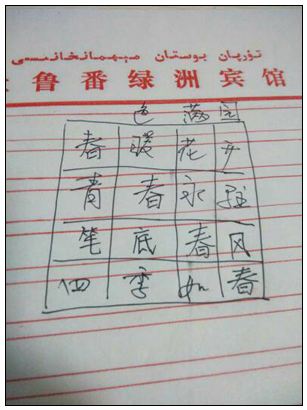 تۇرپان بوستان مېھمانخانىسى
鲁番绿洲宾馆
色满园
春暖花开
青春永驻
笔底春风
四季如春